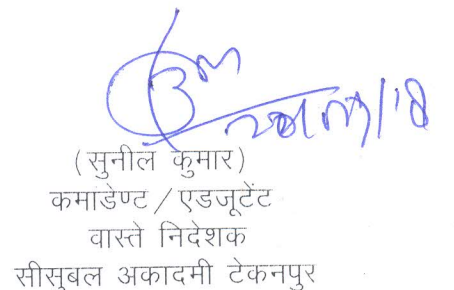 (सुनील कुमार)
कमाडेण्ट / एडजूटेंट
वास्ते निदेशक
सीसुबल अकादमी टेकनपुर